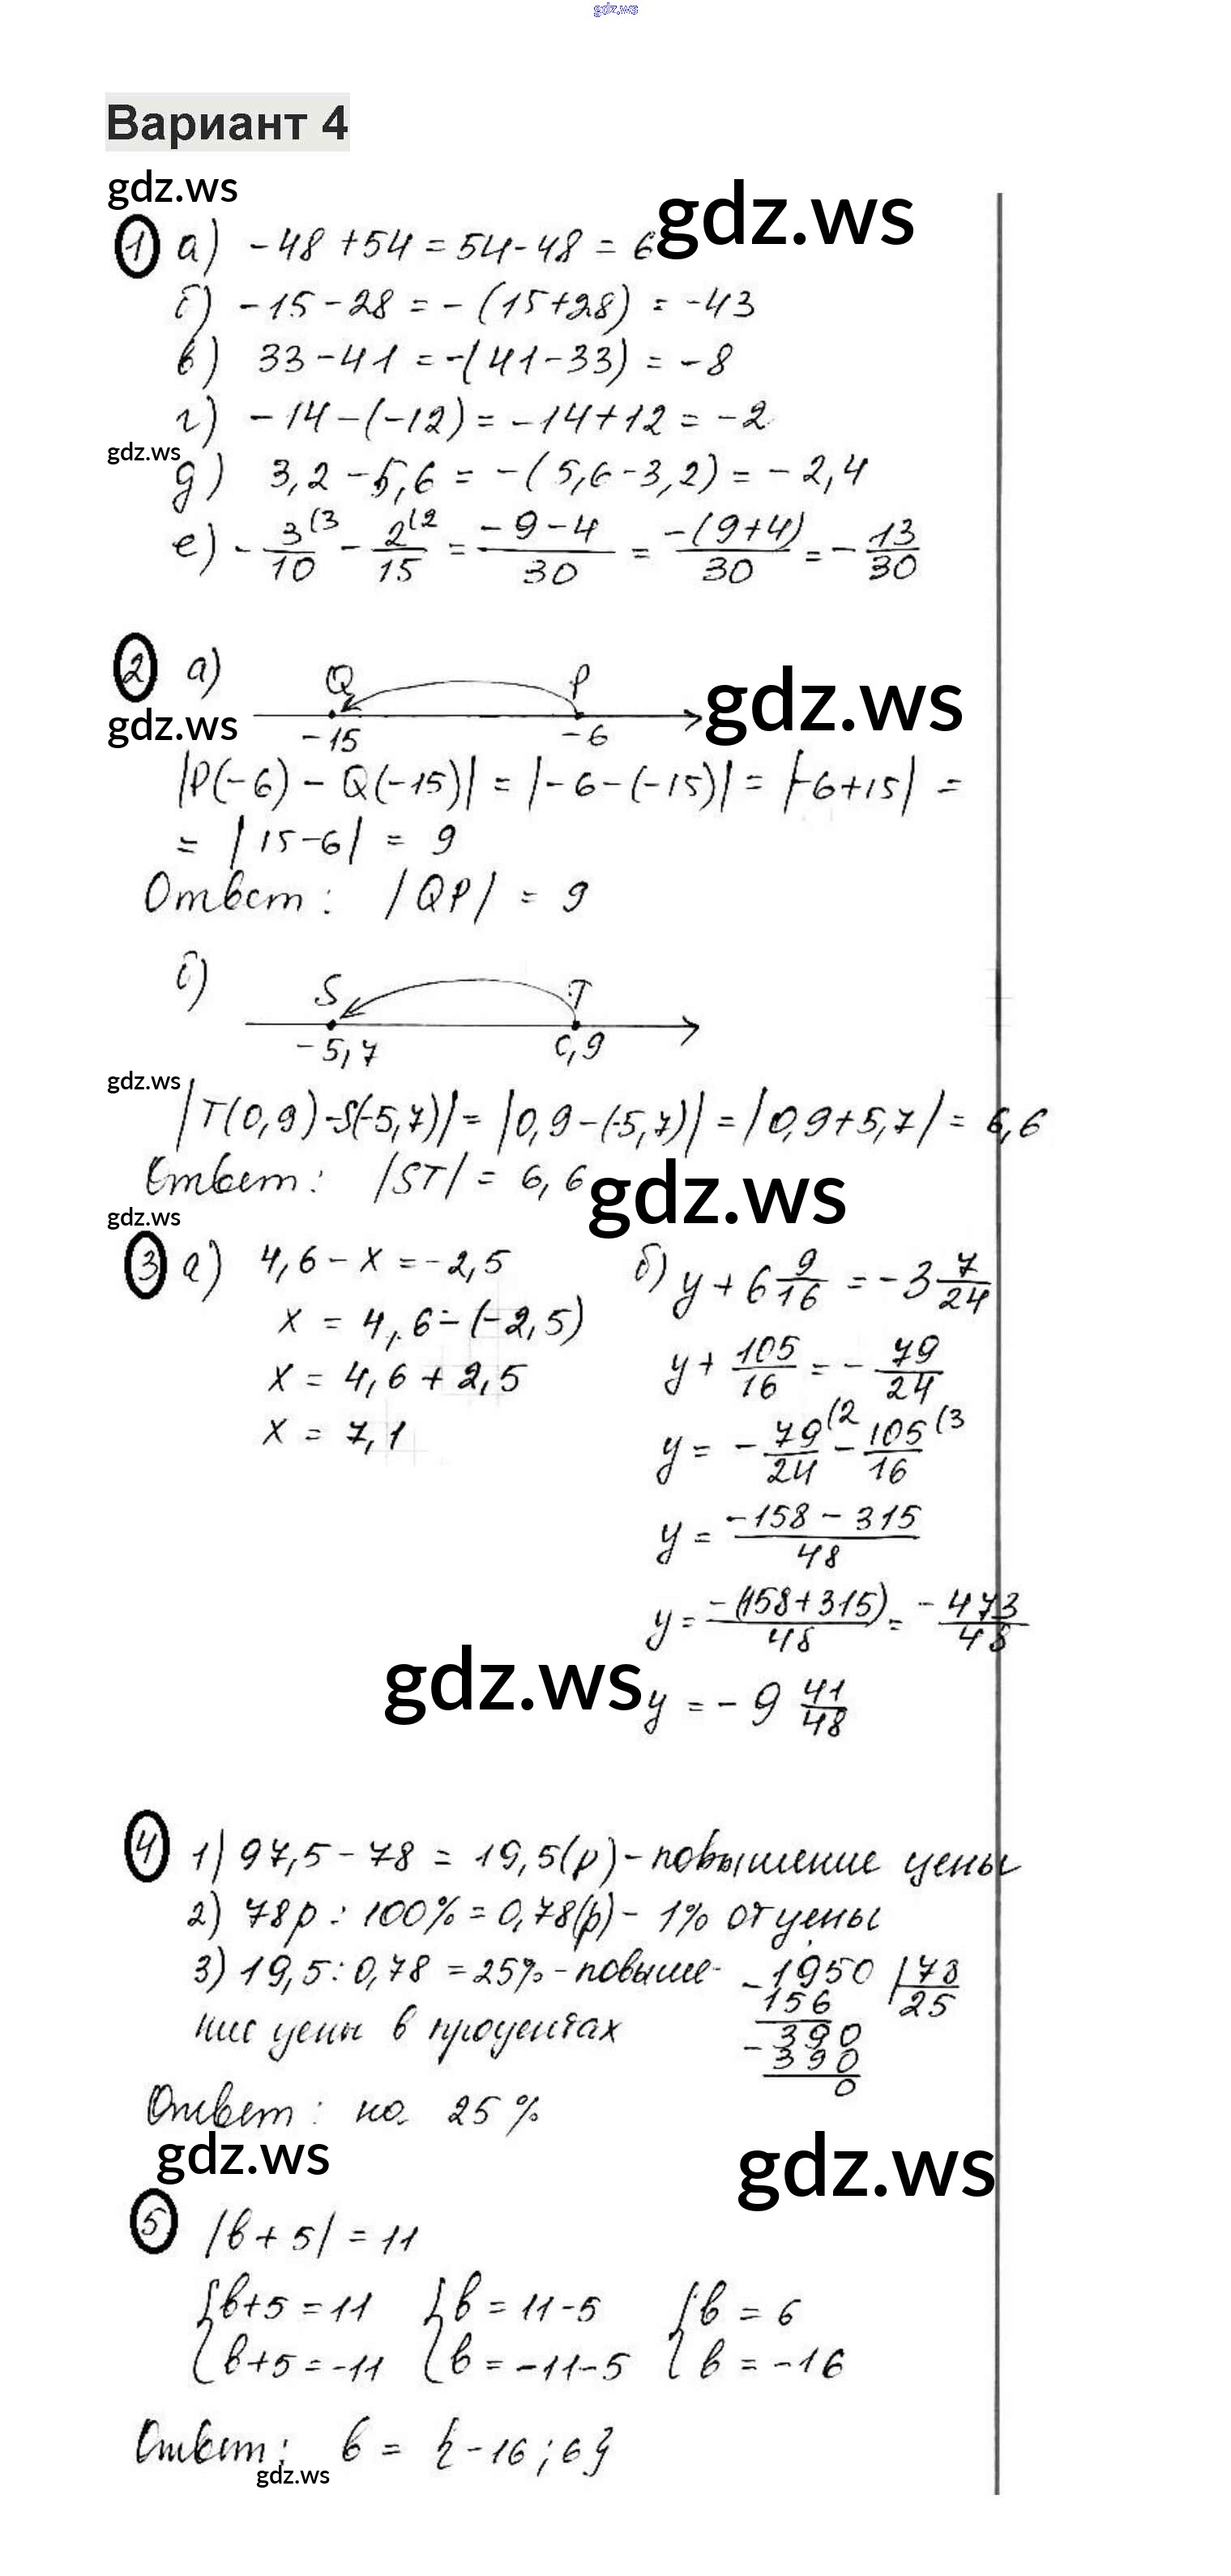 gdz.ws
Вариант 4
gdz.ws
gdz.ws
① а) -48+54=54-48=6
б) -15-28=-(15+28)=-43
в) 33-41=-(41-33)=-8
г) -14-(-12)=-14+12=-2
gdz.ws
д) 3,2-5,6=-(5,6-3,2)=-2,4
е) -3/10(3 - 2/15(2 = (-9-4)/30 = -(9+4)/30 = -13/30
② а) Q P
gdz.ws
gdz.ws
-15 -6
|P(-6)-Q(-15)|=|-6-(-15)|=|-6+15|=
=|15-6|=9
Ответ: |QP|=9
б) S T
-5,7 0,9
gdz.ws
|T(0,9)-S(-5,7)|=|0,9-(-5,7)|=|0,9+5,7|=6,6
Ответ: |ST|=6,6
gdz.ws
gdz.ws
③ а) 4,6-x=-2,5
x=4,6-(-2,5)
x=4,6+2,5
x=7,1
б) y+6 9/16=-3 7/24
y+105/16=-79/24
y=-79/24(2 - 105/16(3
y=(-158-315)/48
y=-(158+315)/48=-473/48
gdz.ws
y=-9 41/48
④ 1) 97,5-78=19,5(р)-повышение цены
2) 78р:100%=0,78(р)-1% от цены
3) 19,5:0,78=25%-повыше-
ние цены в процентах
-1950 |78
156 25
-390
390
0
Ответ: на 25%
gdz.ws
gdz.ws
⑤ |b+5|=11
{b+5=11 {b=11-5 {b=6
{b+5=-11 {b=-11-5 {b=-16
Ответ: b={-16;6}
gdz.ws